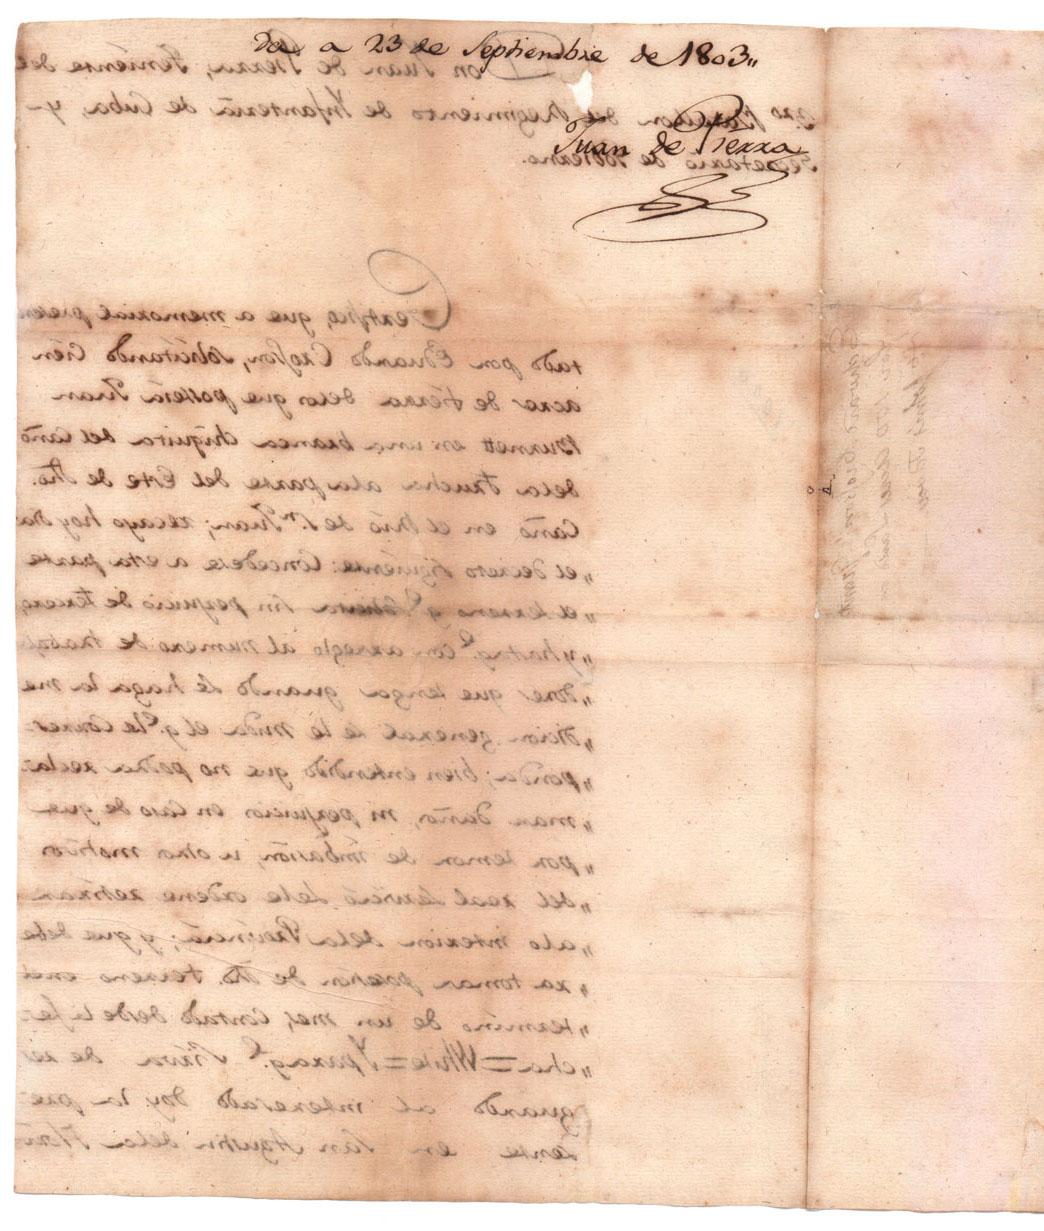 da a 23 de Septiembre de 1803,,
Juan de Pierra
Don Juan de Pierra, Teniente del
3.ro Batallon del Regimiento de Infanteria de Cuba, y
Secretario de Govierno.
Certifico, que a memorial presen
tado por Eduardo solicitando Cien
acres de tierra delos que posseia Juan
en una branca chiquita del Caño
dela Trucha ala parte del Este de dho.
Caño en el Rio de S.n Juan; recayo hoy dia
„el decreto siguiente: Concedese a esta parte
„el terreno q.e solicita sin perjuicio de tercero,
„y hasta q.e con arreglo al numero de trabaja
„dores que tenga quando se haga la me
„dicion general se le mida el q.e le corres
„ponda; bien entendido que no podra recla
„mar daño, ni perjuicio en caso de que
„por temor de imbasion, u otro motivo
„del real servicio se le ordene retirar
„alo interior dela Provincia; y que debe
„ra tomar posesion de dho. terreno en el
„termino de un mes, contado desde la fe
„cha=White=Y para q.e sirva de res
guardo al interesado doy la pre
sente en San Agustin dela Flori